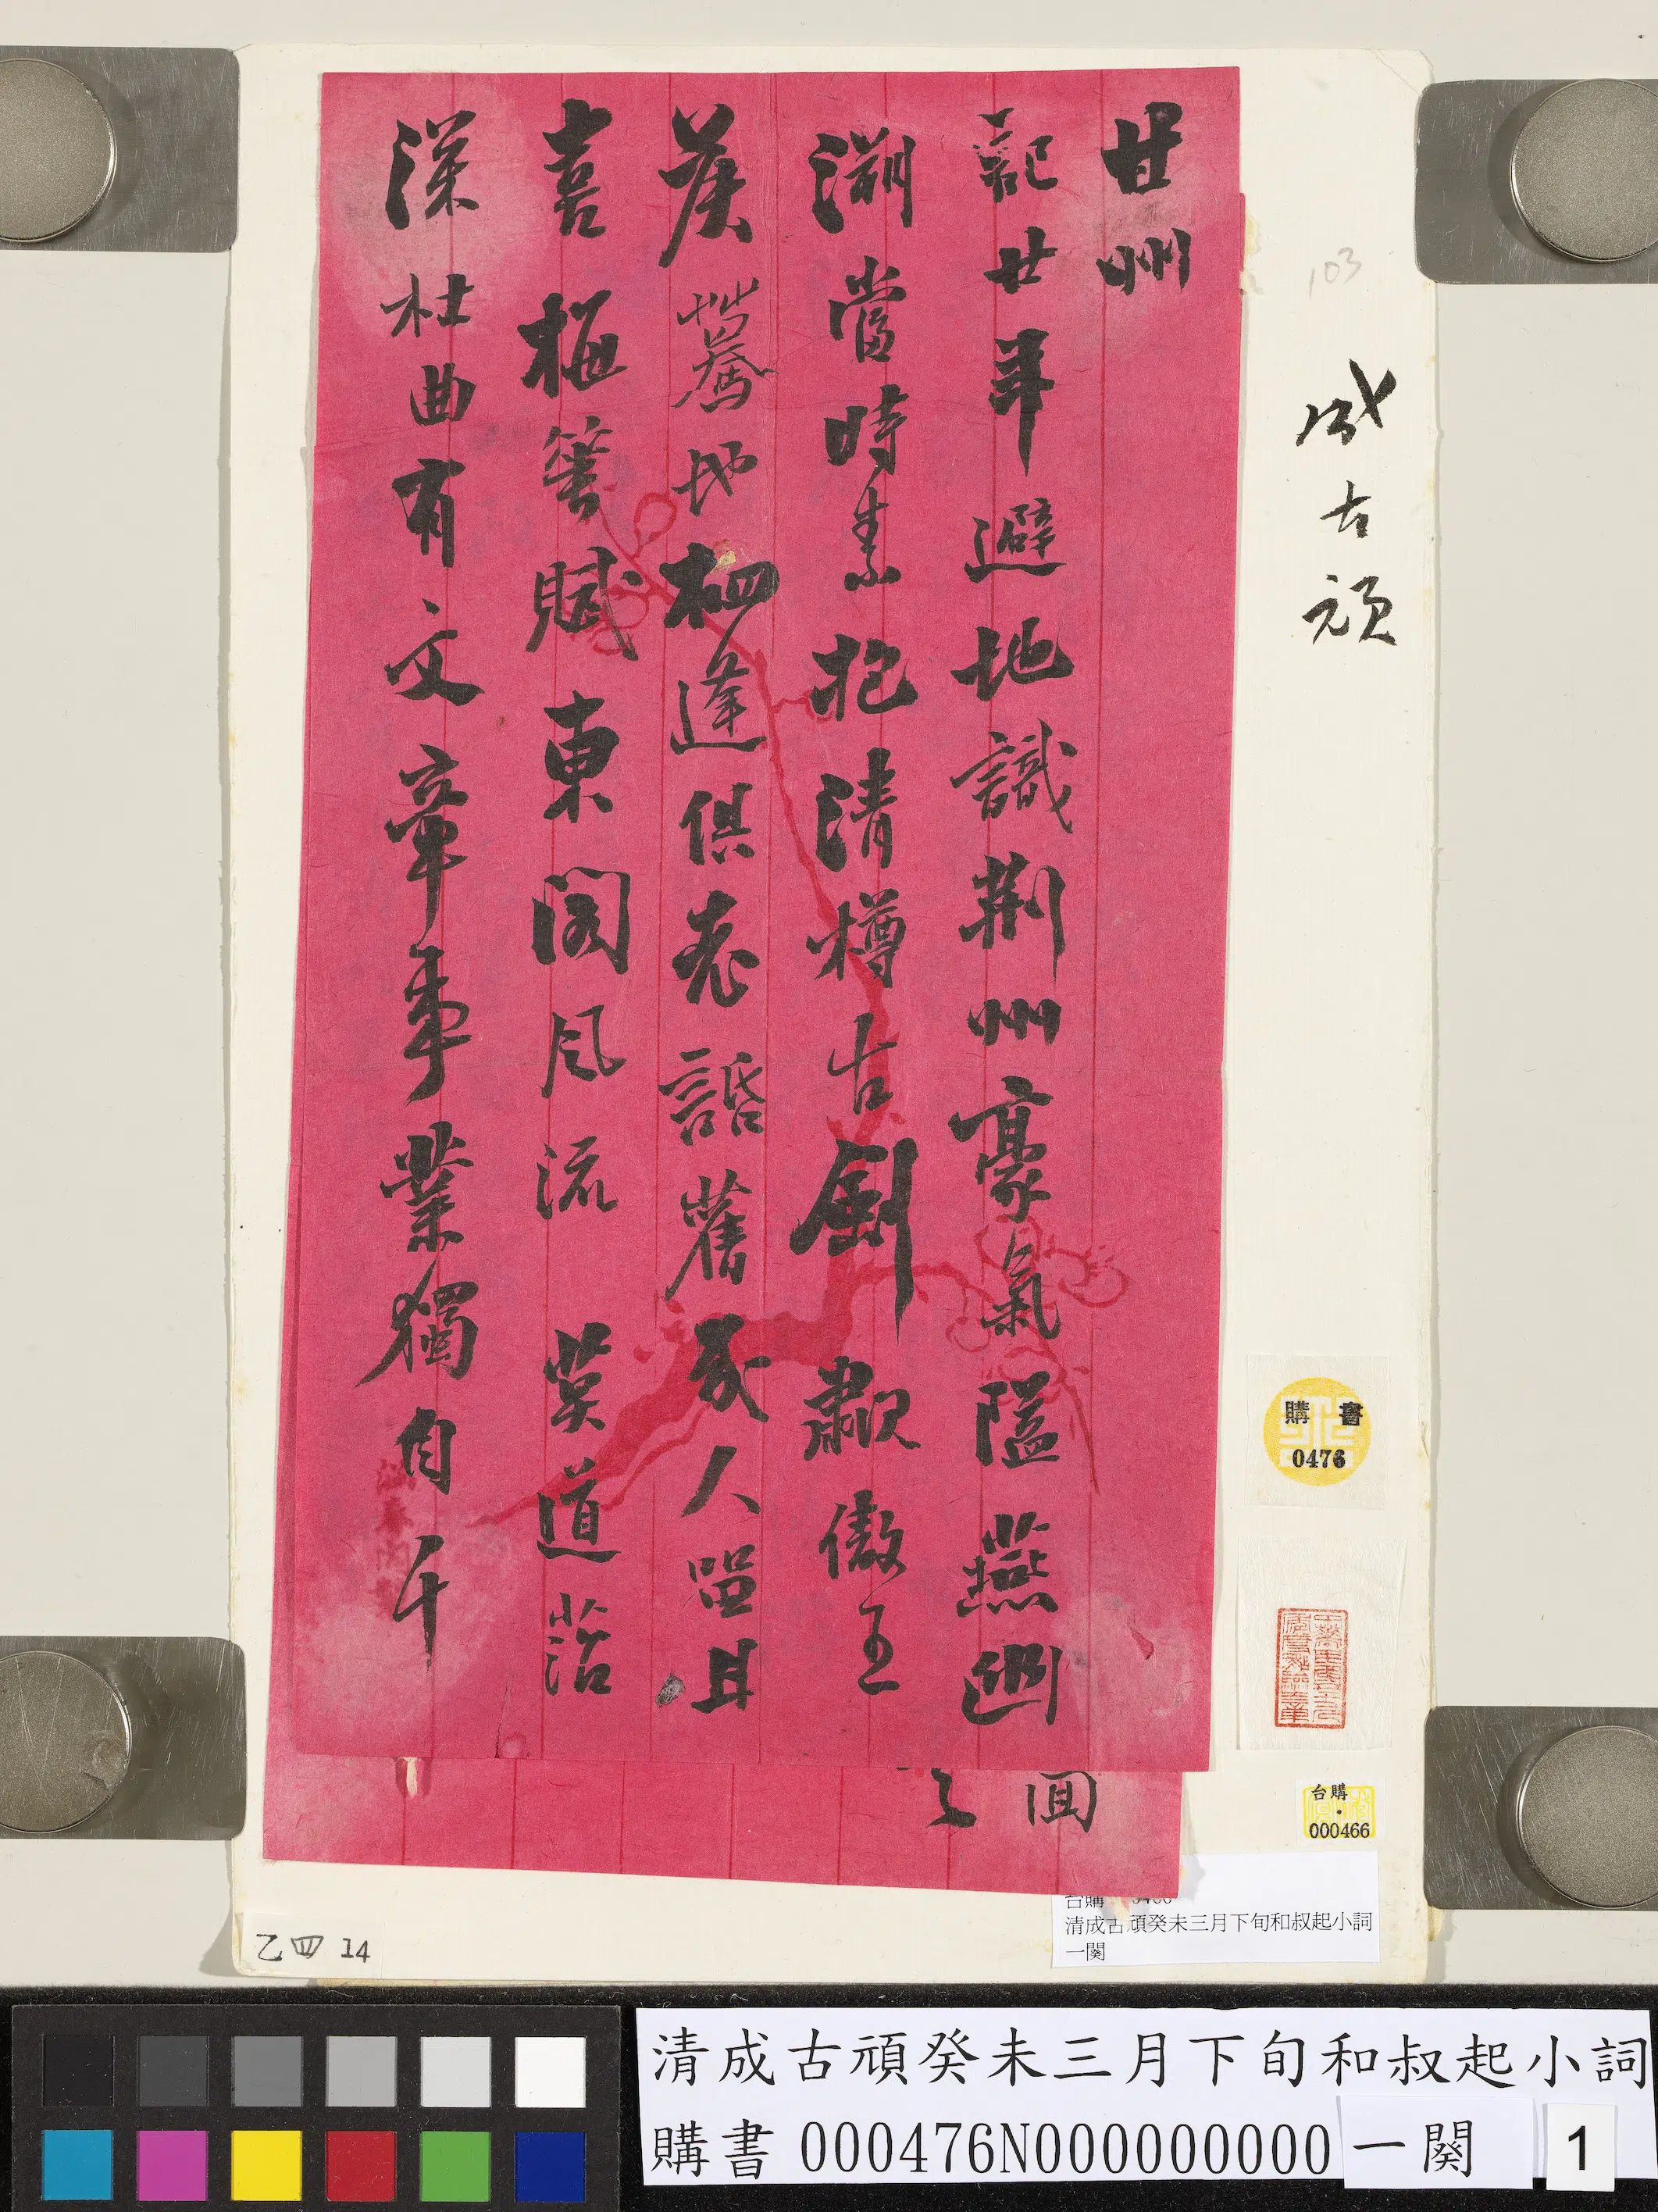 甘州
記廿年避地識荆州豪氣隘燕幽
溯當時素抱清樽古劍歗傲王
矦驀地相逢俱老話舊人留且
喜梅箋賦東閣風流 莫道菭
深杜曲有文章事業獨自千
回
103
成古頑
購書
0476
台購
000466
台購
清成古頑癸未三月下旬和叔起小詞
一闋
乙四 14
清成古頑癸未三月下旬和叔起小詞
購書 000476N000000000 一闋 1